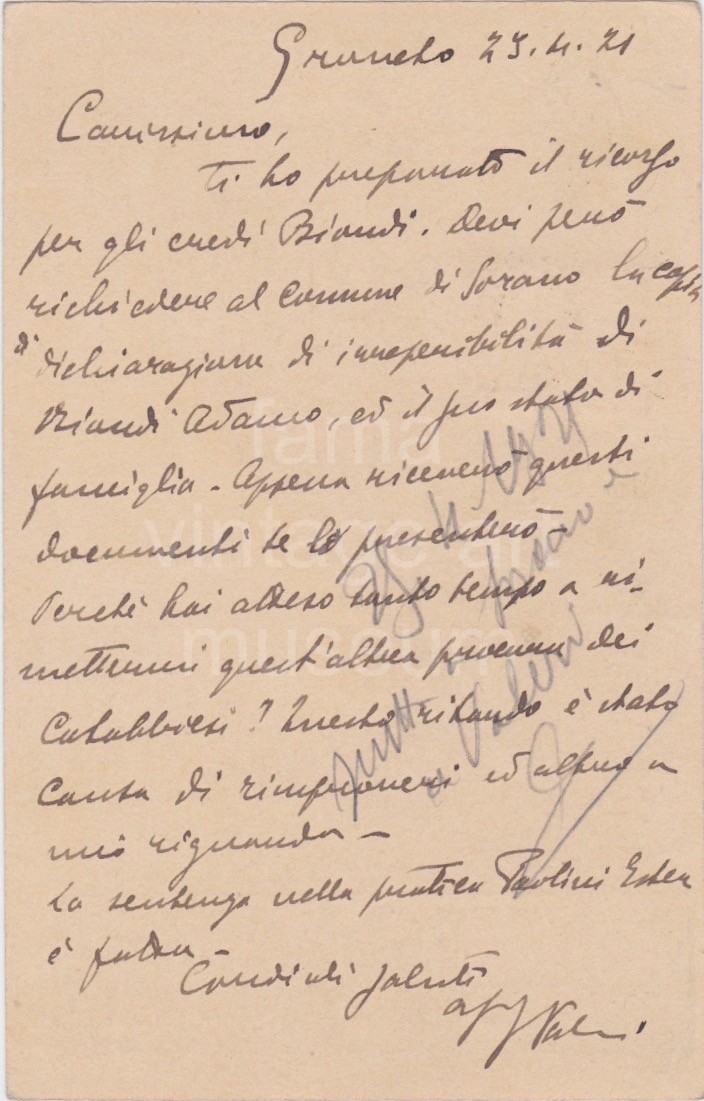 Grosseto 23.4.21
Carissimo,
Ti ho preparato il ricorso
per gli eredi Biondi. Devi però
richiedere al Comune di Sorano la copia
di dichiarazione di irreperibilità di
Biondi Adamo, ed il suo stato di
famiglia - Appena riceverò questi
documenti te lo presenterò -
Perchè hai atteso tanto tempo a ri-
mettermi quest'altra procura dei
Catabbiesi? Questo ritardo è stato
causa di rimproveri ed altro a
mio riguardo -
La sentenza nella pratica Paolini Ester
è fatta -
Cordiali saluti
aff
fama
vintage art
museum